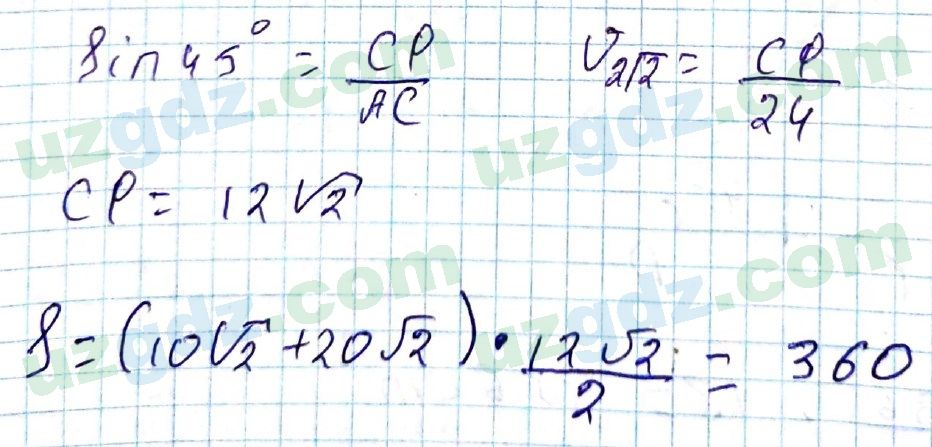 sin 45° = CP/AC √2/2 = CP/24
CP = 12√2
S = (10√2 + 20√2) · 12√2/2 = 360
uzgdz.com uzgdz.com
uzgdz.com uzgdz.com